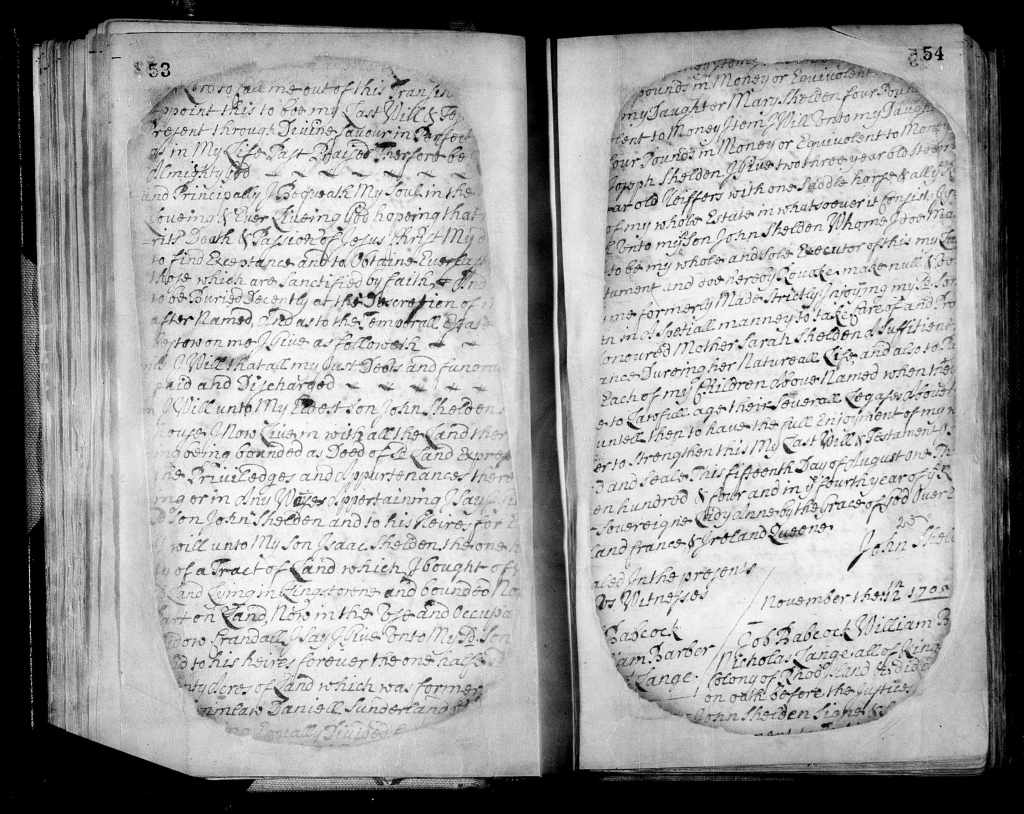 53
to call me out of this Transi
ppoint this to bee my Last Will & Te
Present through Divine favour in Perfect
as in My Life Past Praised Therfore be
Almighty god
and Principally I Bequeath My Soul in the
Loveing & Ever Liveing god hopeing that
rits Death & Passion of Jesus Christ My
to find Exceptance and to Obtaine Everlas
those which are Sanctified by faith And
to be Buried Decently at the Discretion of
after Named, And as to the Temporall Estate
bestow on me I Give as followeth
I Will that all my Just Debts and funera
paid and Discharged
I Will unto My Eldest Son John Shelden
house I Now Live in with all the Land ther
bounded as Deed of Sd Land Expres
the Priviledges and Appurtenances there
ng or in Any Wayes Appertaining I Say
Son John Shelden and to his heires for
will unto My Son Isaac Shelden the one h
ty of a Tract of Land which I bought of
Land Lying in Kingstowne and bounded No
on Land, Now in the Use and Occupa
Crandall I Say I Give Unto My Sd Son
d to his heires forever the one halfe
nty Acres of Land which was former
Daniell Sunderland
Equally Divided
54
pounds in Money or Equivolent
my Daughter Mary Shelden four Poun
lent to Money Item I Will Unto my Daugh
four Pounds in Money or Equivolent to Money
Joseph Shelden I Give two three year old Steers
ear old Heiffers with one Saddle horse & all
of my whole Estate in whatsoever it Consist
Unto my Son John Shelden Whome I doe Ma
to be my whole and Sole Executor of this my La
tament and doe hereby Revoake make null & Vo
me formerly Made Strictly Injoying my Sd Son
in Spetiall manner to take Care of and Pro
onoured Mother Sarah Shelden a Suffitient
ance Dureing her Natureall Life and also to Pa
Each of my Children above Named when the
e to Lawfull age their Severall Legases above
untell then to have the full Enjoyment of my
er to Strengthen this My Last Will & Testament
d and Seale This fifteenth Day of August one Th
en hundred & four and in ye fourth year of ye R
Sovereigne Lady Anne by the Grace of God Over E
land france & Ireland Queene
John Shel
aled In the presents
us Witnesses
November the: 12 1705
Babcock
Job Babcock William B
iam Barber
Nicholas Lange all of King
Lange
Colony of Rhod Island & did
on oath before the Justices
John Shelden Signe & S